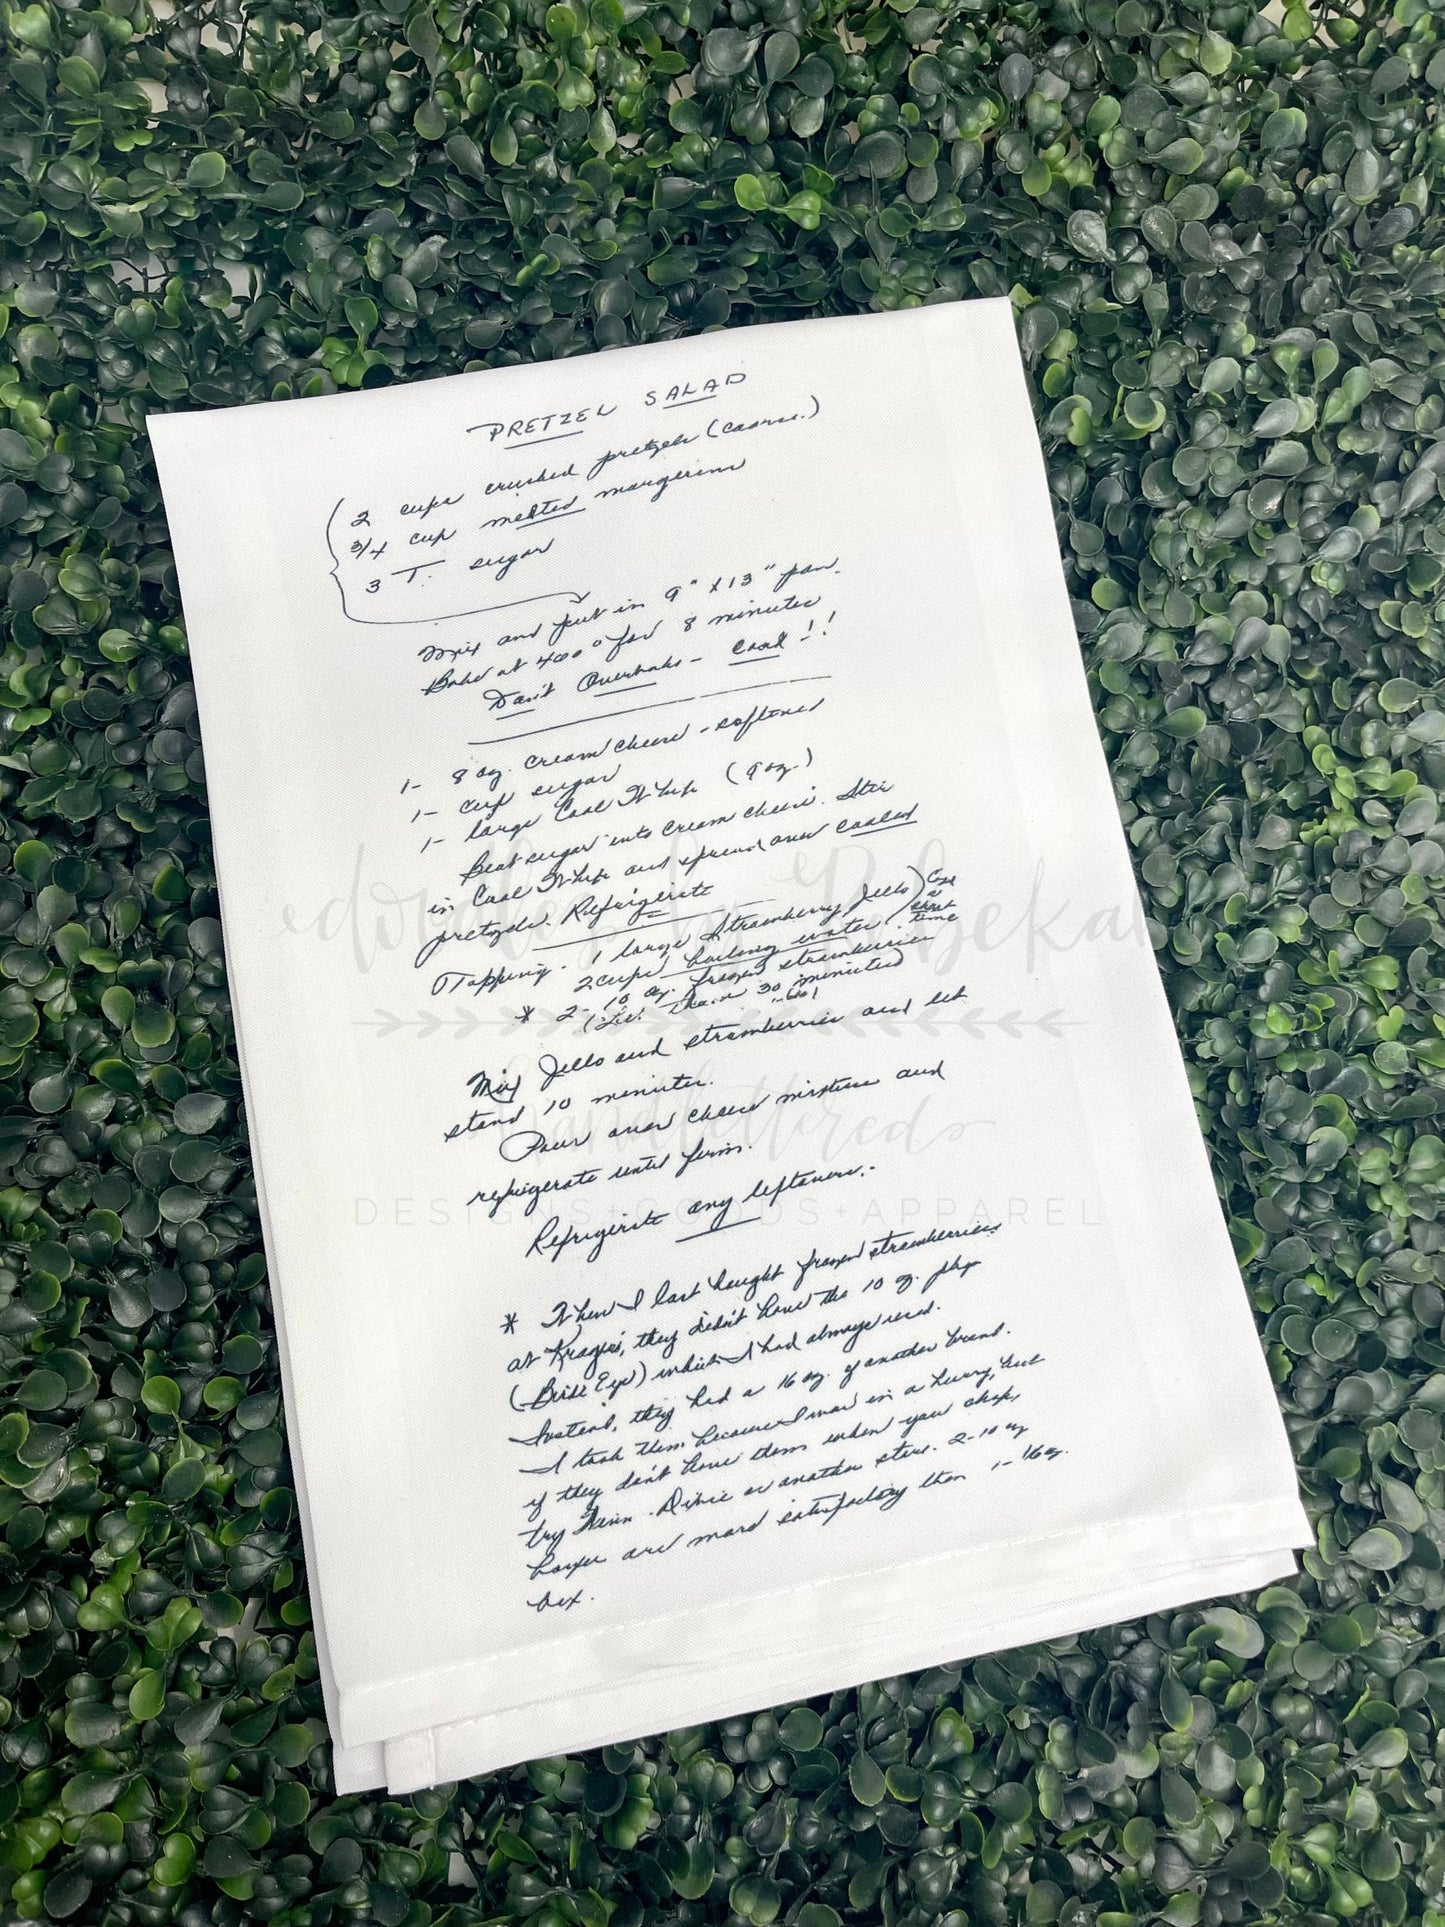 PRETZEL SALAD
2 cups crushed pretzels (coarse.)
3/4 cup melted margerine
3 T. sugar
Mix and put in 9" x 13" pan.
Bake at 400° for 8 minutes
Don't Overbake - Cool - !!
1- 8 oz. cream cheese - softened
1- cup sugar
1- large Cool Whip (9 oz.)
Beat sugar into cream cheese. Stir
in Cool Whip and spread over cooled
pretzels. Refrigerate
Topping - 1 large Strawberry Jello
2 cups boiling water
Cool a short time
* 2- 10 oz. frozen strawberries
than 30 minutes
Mix Jello and strawberries and let
stand 10 minutes.
Pour over cheese mixture and
refrigerate until firm.
Refrigerate any leftovers.-
* When I last bought frozen strawberries
at Krogers', they didn't have the 10 oz. pkgs
(Birds Eye) which I had always used.
Instead, they had a 16 oz. of another brand.
I took them because I was in a hurry, but
if they don't have them when you shop,
try or another store. 2-10 oz
boxes are more satisfactory than 1-16 oz.
box.
doodles by Rebekah
handlettered
DESIGNS+GOODS+APPAREL